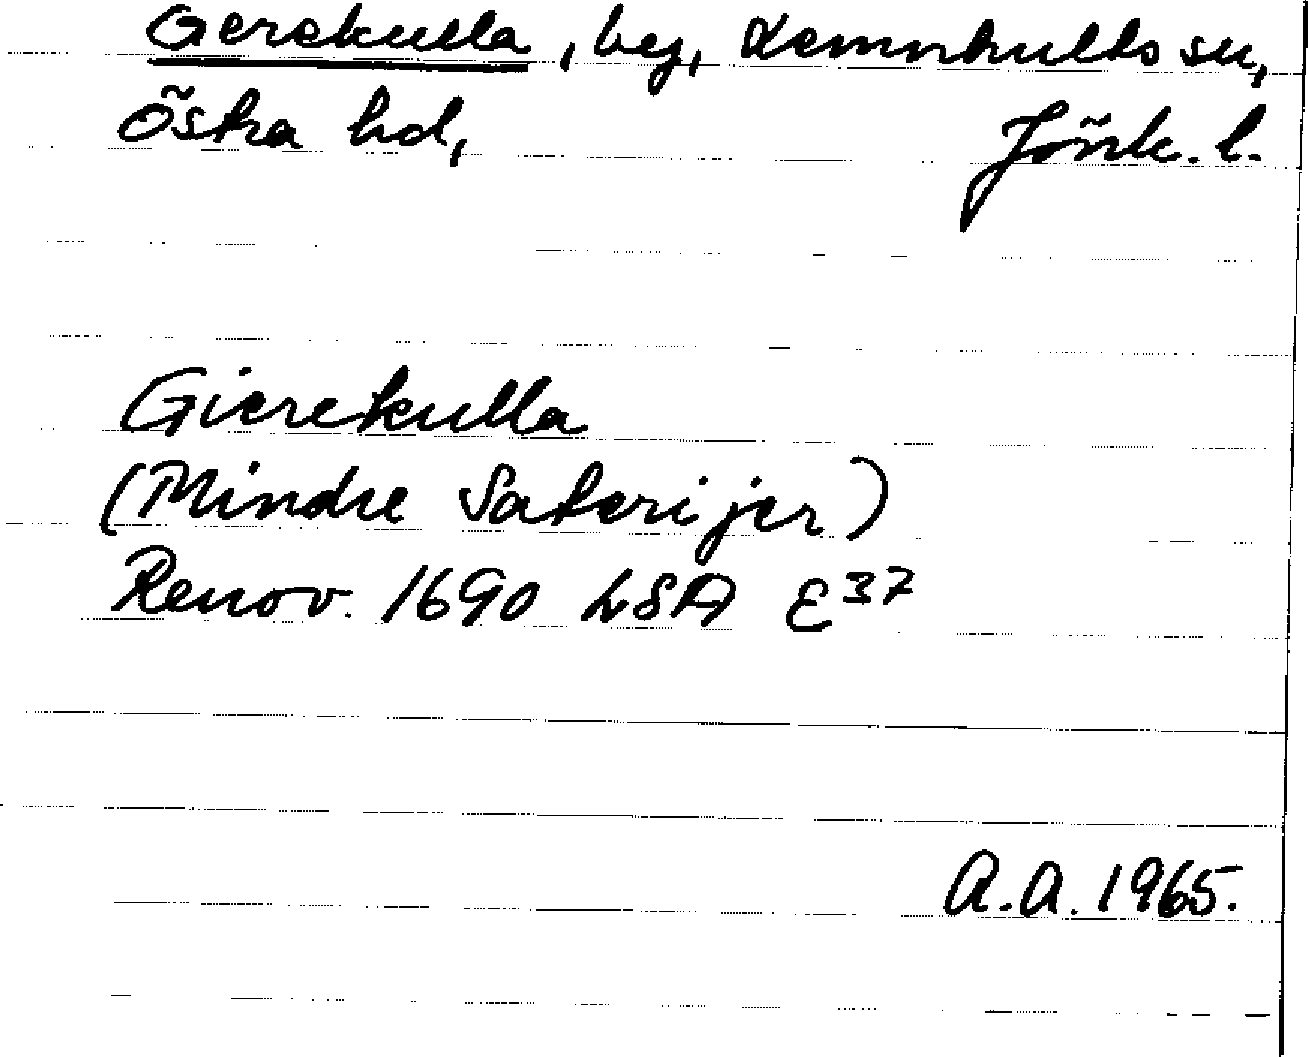 Gerekulla, beg, Lemnhults sn,
Östra hd, Jönk. l.
Gierekulla
(Mindre Saterijer)
Renov. 1690 LSA E37
A.A. 1965.